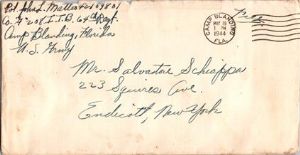 Pvt. John L. Mattar
Co. "A" 208 I.T.B. 64 Regt.
Camp Blanding, Florida
U.S. Army
Free
CAMP BLANDING
1944
FLA.
Mr. Salvatore Schiappa
223 Squires Ave.
Endicott, New York